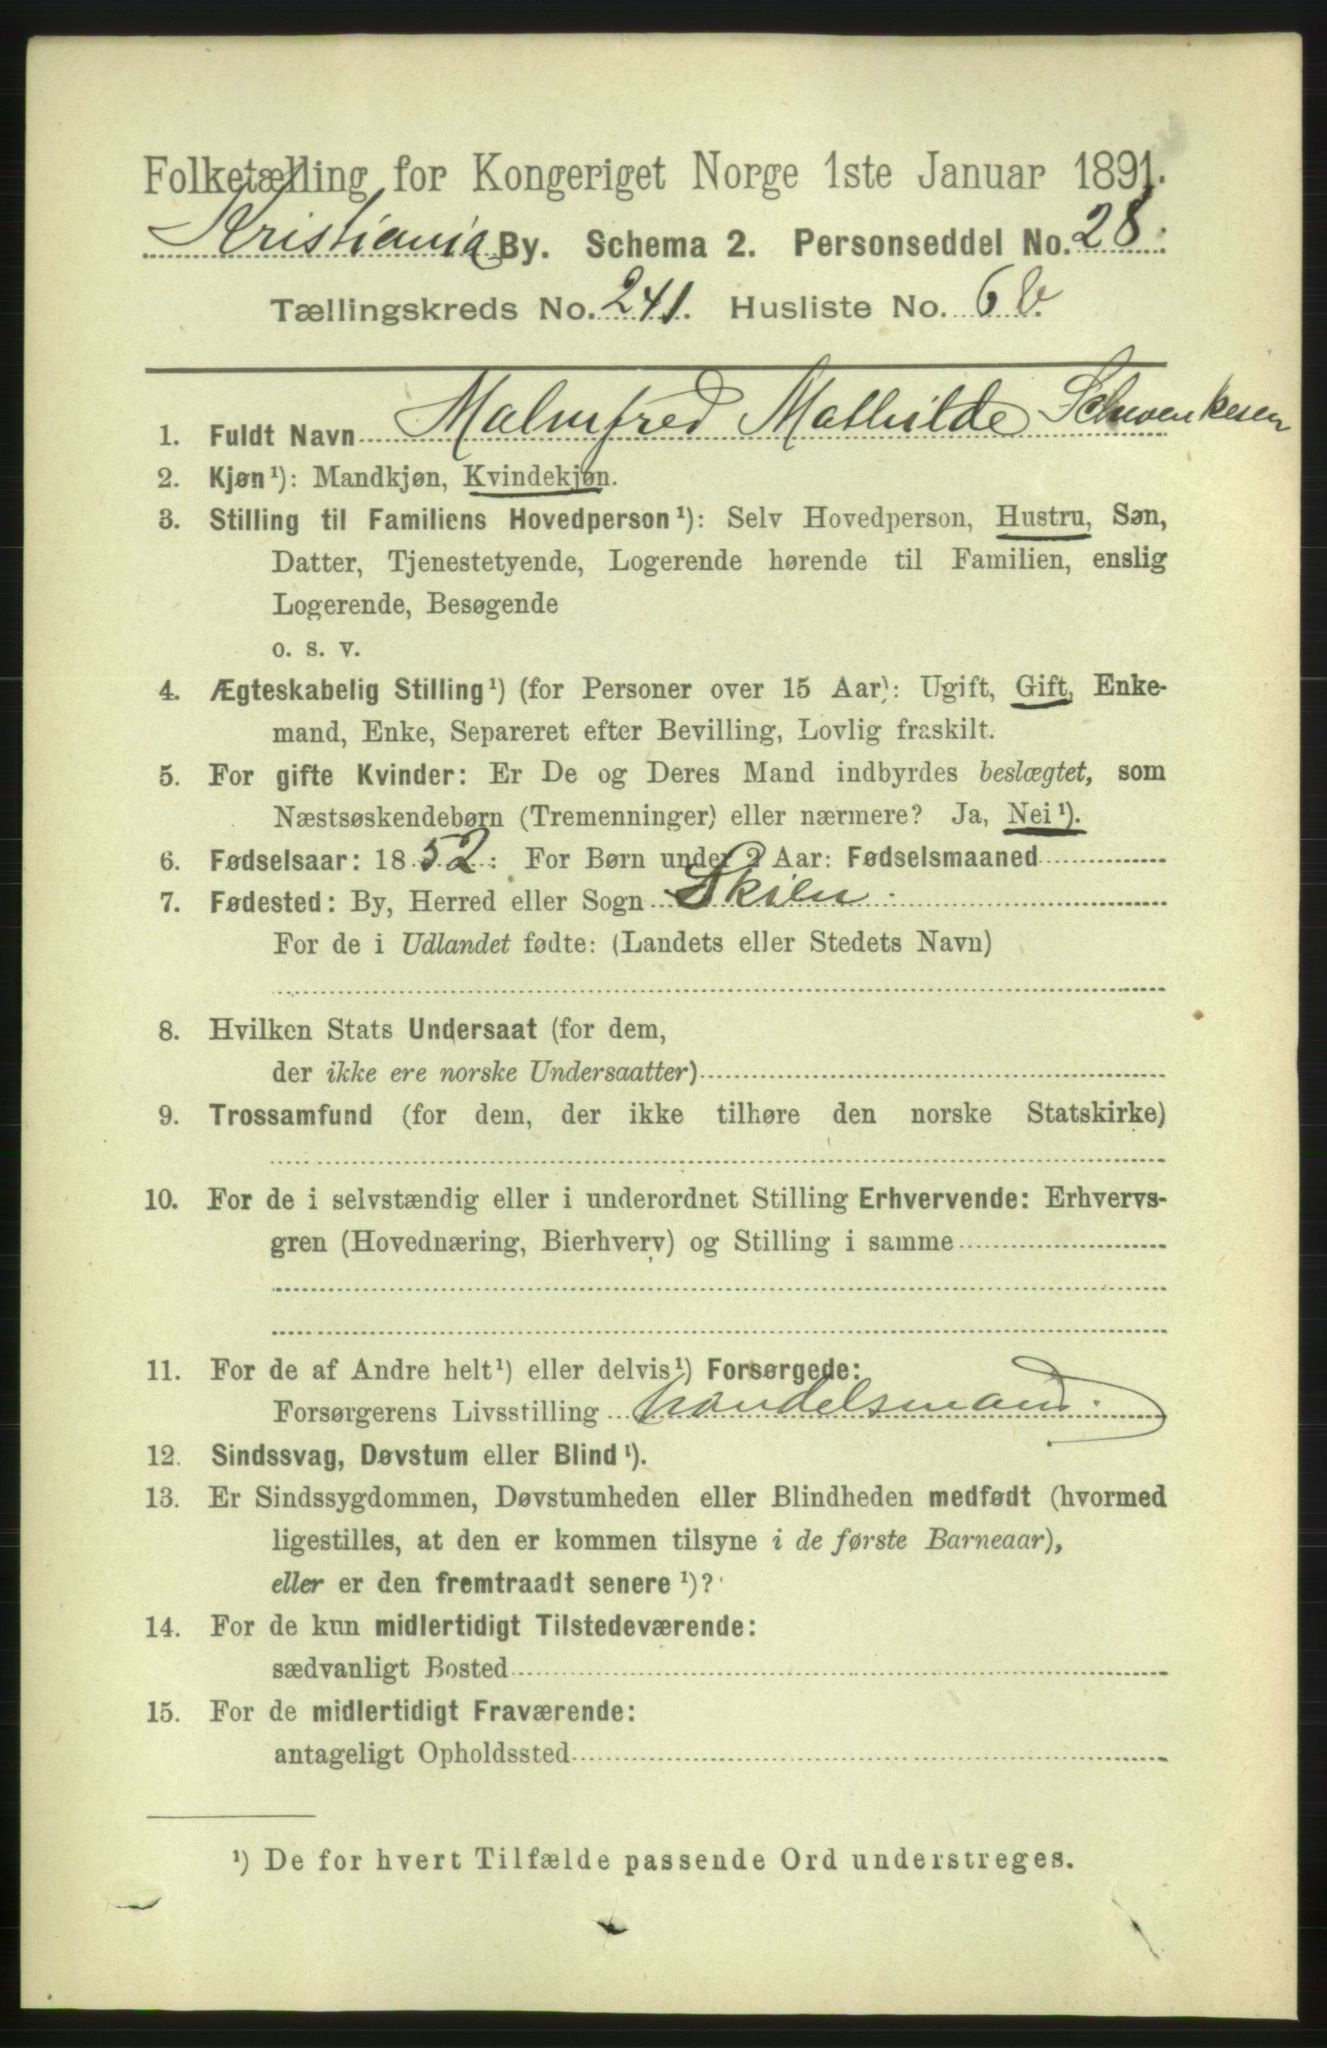 Folketælling for Kongeriget Norge 1ste Januar 1891.
Kristiania By. Schema 2. Personseddel No. 28.
Tællingskreds No. 241. Husliste No. 6b.
1. Fuldt Navn Malmfred Mathilde Schwenkesen
2. Kjøn¹): Mandkjøn, Kvindekjøn.
3. Stilling til Familiens Hovedperson¹): Selv Hovedperson, Hustru, Søn,
Datter, Tjenestetyende, Logerende hørende til Familien, enslig
Logerende, Besøgende
o. s. v.
4. Ægteskabelig Stilling¹) (for Personer over 15 Aar): Ugift, Gift, Enke-
mand, Enke, Separeret efter Bevilling, Lovlig fraskilt.
5. For gifte Kvinder: Er De og Deres Mand indbyrdes beslægtet, som
Næstsøskendebørn (Tremenninger) eller nærmere? Ja, Nei¹).
6. Fødselsaar: 1852. For Børn under 2 Aar: Fødselsmaaned
7. Fødested: By, Herred eller Sogn Skien
For de i Udlandet fødte: (Landets eller Stedets Navn)
8. Hvilken Stats Undersaat (for dem,
der ikke ere norske Undersaatter)
9. Trossamfund (for dem, der ikke tilhøre den norske Statskirke)
10. For de i selvstændig eller i underordnet Stilling Erhvervende: Erhvervs-
gren (Hovednæring, Bierhverv) og Stilling i samme
11. For de af Andre helt¹) eller delvis¹) Forsørgede:
Forsørgerens Livsstilling handelsmand.
12. Sindssvag, Døvstum eller Blind¹).
13. Er Sindssygdommen, Døvstumheden eller Blindheden medfødt (hvormed
ligestilles, at den er kommen tilsyne i de første Barneaar),
eller er den fremtraadt senere¹)?
14. For de kun midlertidigt Tilstedeværende:
sædvanligt Bosted
15. For de midlertidigt Fraværende:
antageligt Opholdssted
¹) De for hvert Tilfælde passende Ord understreges.